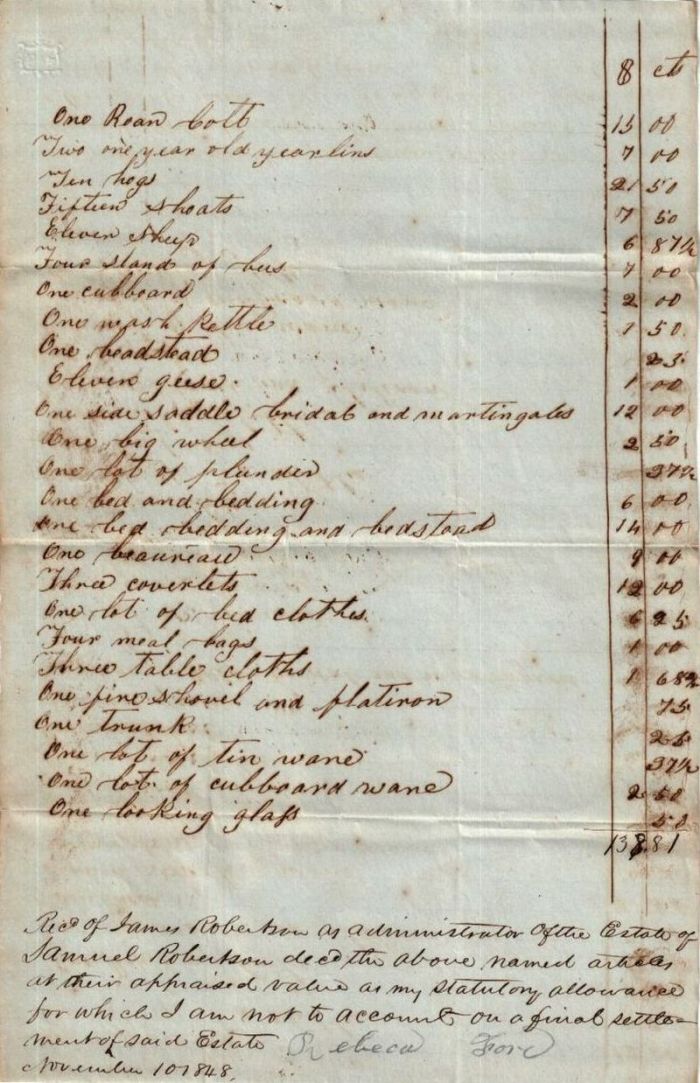 $ cts
One Roan Colt 15 00
Two one year old yearlins 7 00
Ten hogs 21 50
Fifteen shoats 7 50
Eleven sheep 6 87½
Four stand of bees 7 00
One cubboard 2 00
One wash kettle 1 50
One beadstead 25
Eleven geese 1 00
One side saddle bridal and martingales 12 00
One big wheel 2 50
One lot of plunder 37½
One bed and bedding 6 00
One bed bedding and bedstead 14 00
One beaureau 9 00
Three coverlets 12 00
One lot of bed clothes 6 25
Four meal bags 1 00
Three table cloths 1 68¾
One fire shovil and flatiron 75
One trunk 25
One lot of tin ware 37½
One lot of cubboard ware 2 50
One looking glass 50
138 81
Recd of James Robertson as administrator of the Estate of
Samuel Robertson decd the above named articles
at their appraised value as my statutory allowance
for which I am not to account on a final settle=
ment of said Estate Rebeca
November 10 1848.